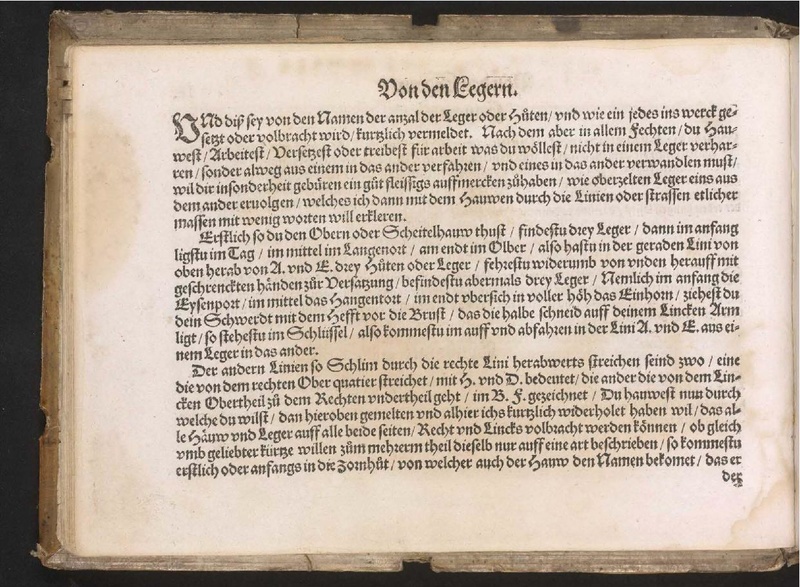 Von den Legern.
VNd diß sey von den Namen der anzal der Leger oder Hůten/ vnd wie ein jedes ins werck ge-
setzt oder volbracht wird/ kurtzlich vermeldet. Nach dem aber in allem Fechten/ du Hau-
west/ Arbeitest/ Versetzest oder treibest für arbeit was du wöllest/ nicht in einem Leger verhar-
ren/ sonder alweg aus einem in das ander verfahren/ vnd eines in das ander verwandlen must/
wil dir insonderheit gebüren ein gůt fleissigs auffmercken zůhaben/ wie oberzelten Leger eins aus
dem ander eruolgen/ welches ich dann mit dem Hauwen durch die Linien oder strassen etlicher
massen mit wenig worten will erkleren.
Erstlich so du den Obern oder Scheitelhauw thust/ findestu drey Leger/ dann im anfang
ligstu im Tag/ im mittel im Langenort/ am endt im Olber/ also hastu in der geraden Lini von
oben herab von A. vnd E. drey Hůten oder Leger/ fehrestu widerumb von vnden herauff mit
geschrenckten händen zůr Versatzung/ befindestu abermals drey Leger/ Nemlich im anfang die
Eysenport/ im mittel das Hangentort/ im endt vbersich in voller höh das Einhorn/ ziehest du
dein Schwerdt mit dem Hefft vor die Brust/ das die halbe schneid auff deinem Lincken Arm
ligt/ so stehestu im Schlüssel/ also kommestu im auff vnd abfahren in der Lini A. vnd E. aus ei-
nem Leger in das ander.
Der andern Linien so Schlim durch die rechte Lini herabwerts streichen seind zwo/ eine
die von dem rechten Ober quatier streichet/ mit H. vnd D. bedeutet/ die ander die von dem Lin-
cken Obertheil zů dem Rechten vndertheil geht/ im B. F. gezeichnet/ Du hauwest nun durch
welche du wilst/ dan hieroben gemelten vnd alhier ichs kurtzlich widerholet haben wil/ das al-
le Häuw vnd Leger auff alle beide seiten/ Recht vnd Lincks volbracht werden können/ ob gleich
vmb geliebter kürtze willen zům mehrerm theil dieselb nur auff eine art beschrieben/ so kommestu
erstlich oder anfangs in die Zornhůt/ von welcher auch der Hauw den Namen bekomet/ das er
der